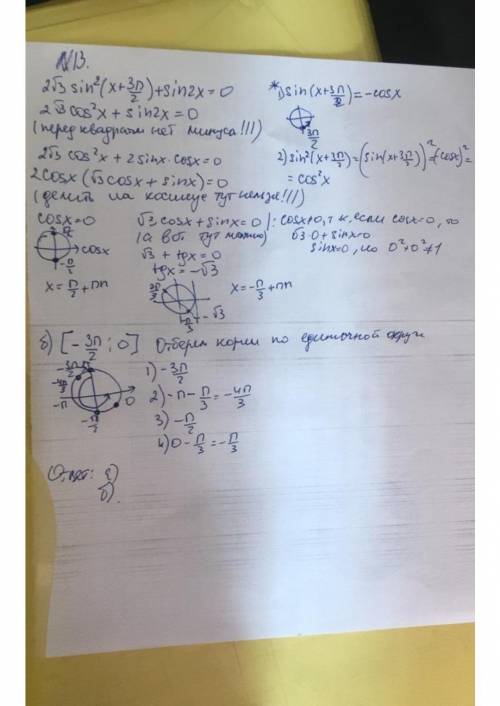 №13.
2√3 sin²(x+3π/2)+sin2x=0
2√3 cos²x + sin2x=0
(перед квадратом нет минуса!!!)
2√3 cos²x + 2sinx·cosx=0
2cosx(√3cosx+sinx)=0
(делить на косинус тут нельзя!!!)
* 1) sin(x+3π/2)=-cosx
3π/2
2) sin²(x+3π/2)=(sin(x+3π/2))²=(-cosx)²=
=cos²x
cosx=0
π/2
cosx
-π/2
x=π/2+πn
√3cosx+sinx=0 |:cosx≠0, т.к. если cosx=0, то
(а вот тут можно) √3·0+sinx=0
sinx=0, но 0²+0²≠1
√3+tgx=0
tgx=-√3
2π/3
-π/3
-√3
x=-π/3+πn
б) [-3π/2; 0] Отберем корни по единичной окружности
-3π/2
-4π/3
-π
-π/2
0
1) -3π/2
2) -π-π/3=-4π/3
3) -π/2
4) 0-π/3=-π/3
Ответ: а)
б)